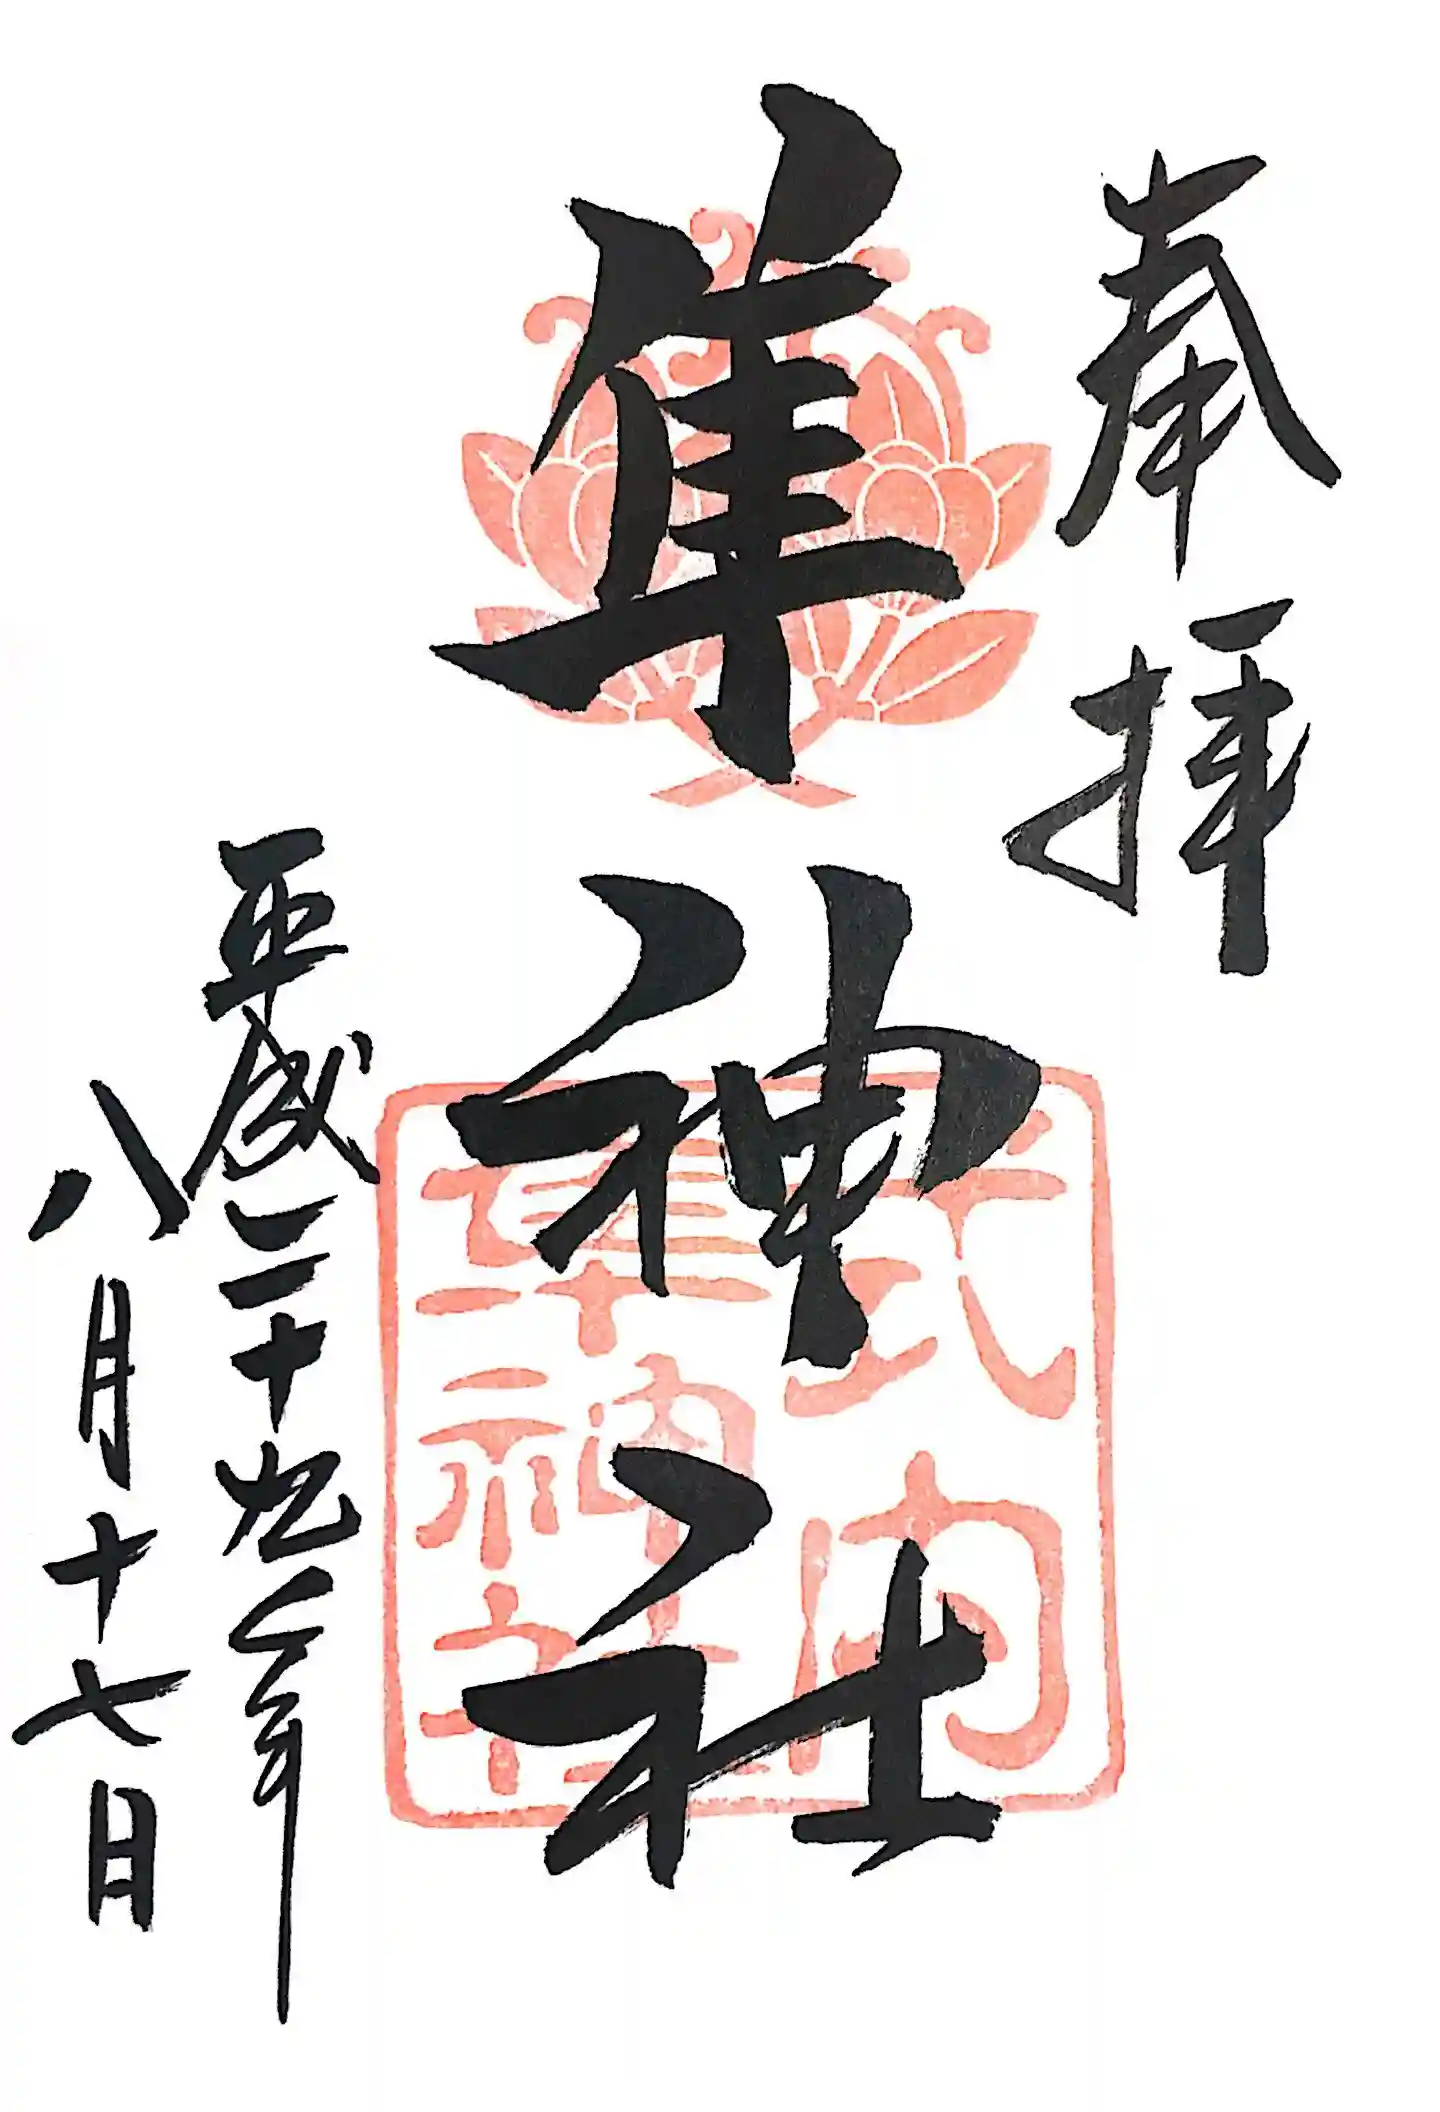 奉拝
隼神社
式内
隼神社
平成二十九年
八月十七日